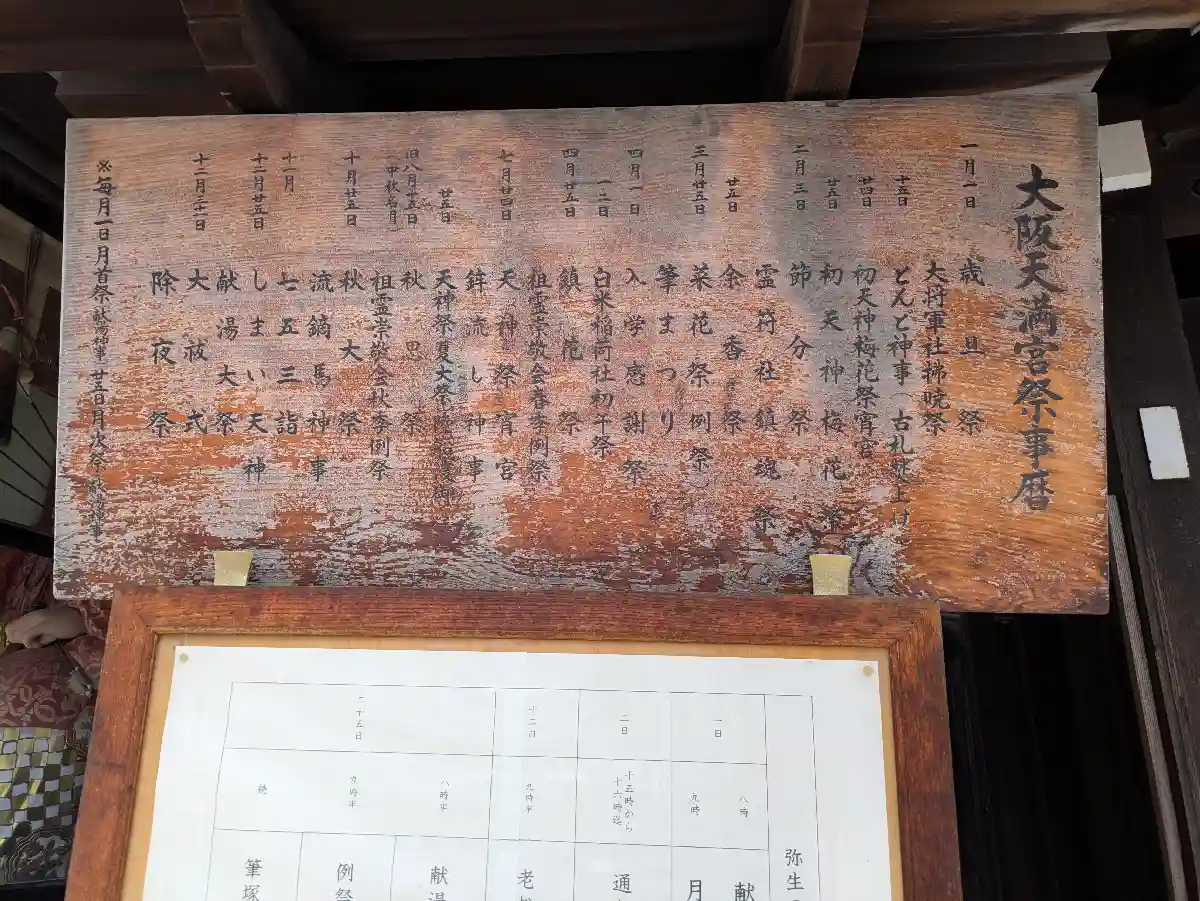 大阪天満宮祭事暦
一月一日 歳旦祭
大将軍社拂暁祭
十五日 とんど神事(古札焚上げ
廿四日 初天神梅花祭宵宮
廿五日 初天神梅花祭
二月三日 節分祭
霊符社鎮魂祭
廿五日 余香祭
三月廿五日 菜花祭(例祭)
筆まつり
四月一日 入学感謝祭
白米稲荷社初午祭
四月廿五日 鎮花祭
祖霊崇敬会春季例祭
七月廿四日 天神祭宵宮
鉾流し神事
廿五日 天神祭夏大祭
旧八月廿五日 秋思祭
(中秋名月) 祖霊崇敬会秋季例祭
十月廿五日 秋大祭
流鏑馬神事
十一月 七五三詣
十二月廿五日 しまい天神
献湯大祭
十二月三十一日 大祓式
除夜祭
※毎月一日月首祭(献湯神事)廿五日月次祭(献湯神事
弥生
一日
八時
献
九時
月
二日
十五時から
十六時迄
通
十二日
九時半
老松
二十五日
八時半
献湯
九時半
例祭
続
筆塚